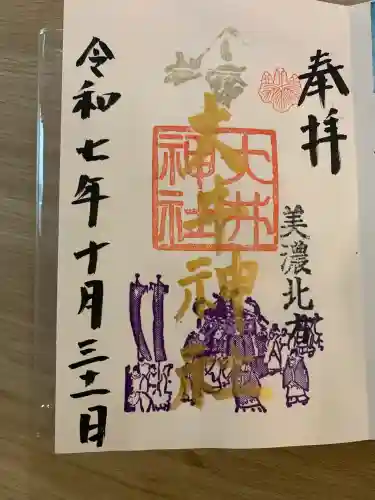 奉拝
美濃北方
大井神社
大井神社
令和七年十月三十一日